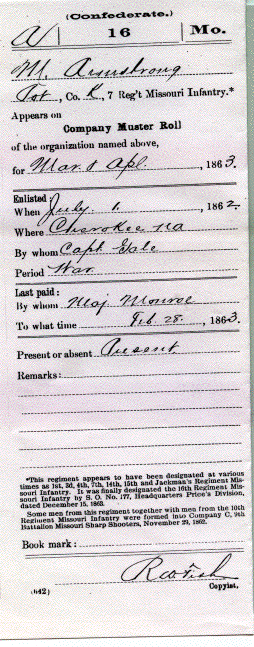 (Confederate.)
A | 16 | Mo.
M. Armstrong
Pvt, Co. K, 7 Reg't Missouri Infantry.*
Appears on
Company Muster Roll
of the organization named above,
for Mar & Apl, 1863.
Enlisted:
When July 1, 1862.
Where Cherokee Na
By whom Capt Gale
Period War
Last paid:
By whom Maj Monroe
To what time Feb. 28, 1863.
Present or absent Present
Remarks:
*This regiment appears to have been designated at various
times as 1st, 3d, 4th, 7th, 14th, 15th and Jackman's Regiment Mis-
souri Infantry. It was finally designated the 16th Regiment Mis-
souri Infantry by S. O. No. 177, Headquarters Price's Division,
dated December 15, 1863.
Some men from this regiment together with men from the 10th
Regiment Missouri Infantry were formed into Company C, 9th
Battalion Missouri Sharp Shooters, November 29, 1862.
Book mark:
(642)
Copyist.